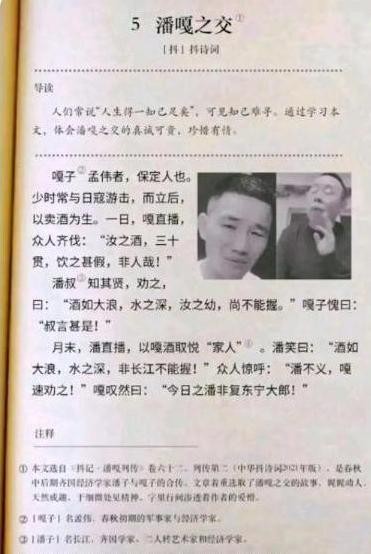 5 潘嘎之交①
[抖] 抖诗词
导读
人们常说“人生得一知己足矣”，可见知己难寻。通过学习本
文，体会潘嘎之交的真诚可贵，珍惜友情。
嘎子②孟伟者，保定人也。
少时常与日寇游击，而立后，
以卖酒为生。一日，嘎直播，
众人齐伐：“汝之酒，三十
贯，饮之甚假，非人哉！”
潘叔③知其贤，劝之，
曰：“酒如大浪，水之深，汝之幼，尚不能握。”嘎子愧曰：
“叔言甚是！”
月末，潘直播，以嘎酒取悦“家人”④。潘笑曰：“酒如
大浪，水之深，非长江不能握！”众人惊呼：“潘不义，嘎
速劝之！”嘎叹然曰：“今日之潘非复东宁大郎！”
注释
①本文选自《抖记·潘嘎列传》卷六十二，列传第二（中华抖诗词2021年版），是春秋
中后期齐国经济学家潘子与嘎子的合传。文章着重选取了潘嘎之交的故事，娓娓动人，
天然成趣，于细微处见精神，字里行间渗透着作者的爱憎。
②［嘎子］名孟伟，春秋初期的军事家与经济学家。
③［潘子］名长江，齐国学家、二人转艺术家和经济学家。